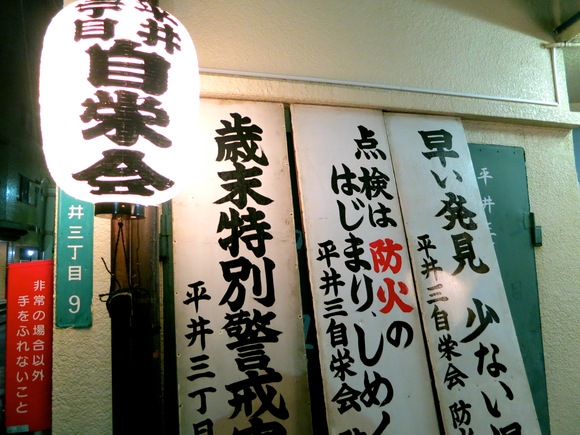 平井
三丁目
自栄会
井三丁目
9
非常の場合以外
手をふれないこと
歳末特別警戒
平井三丁目
点検は防火の
はじまり、しめく
平井三自栄会
早い発見 少ない
平井三自栄会 防火
平井三